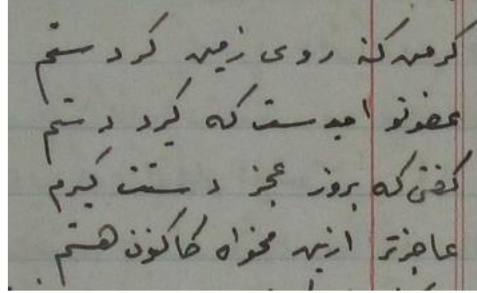 گر من گنه روی زمین کردستم
عفو تو امیدست که گیرد دستم
گفتی که بروز عجز دستت گیرم
عاجزتر ازین مخواه کاکنون هستم